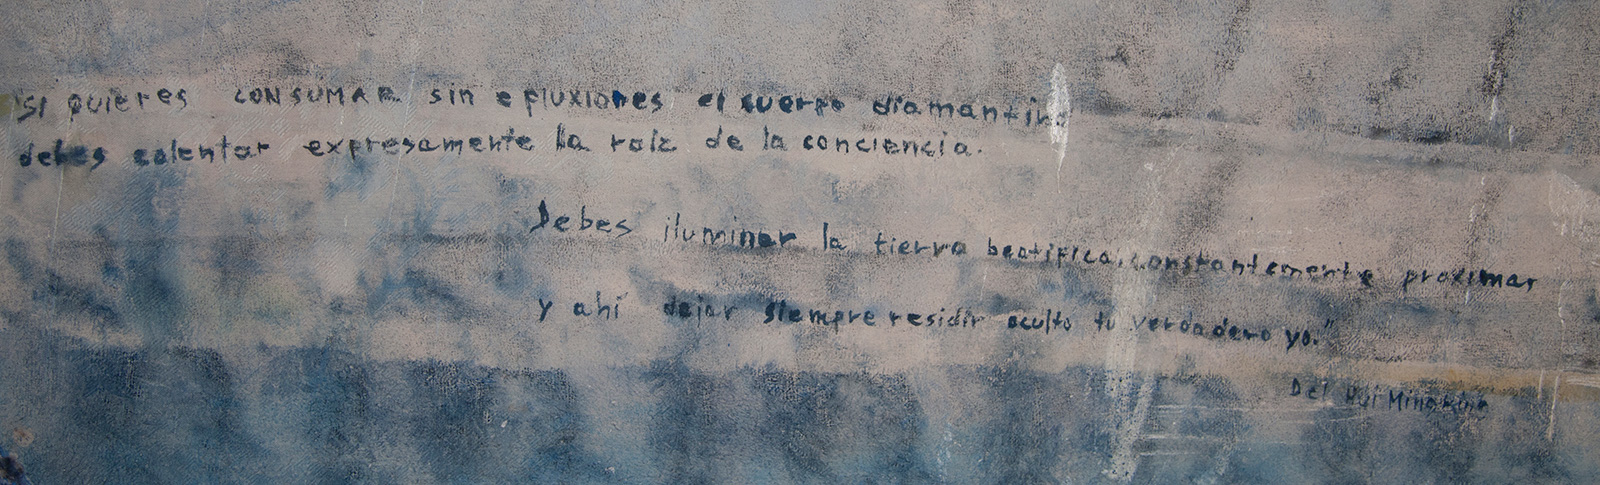 "Si quieres CONSUMAR sin efluxiones el cuerpo diamantino
debes calentar expresamente la raíz de la conciencia.
Debes iluminar la tierra beatífica, constantemente próximar
y ahí dejar siempre residir oculto tu verdadero yo."
Del Hui Ming King